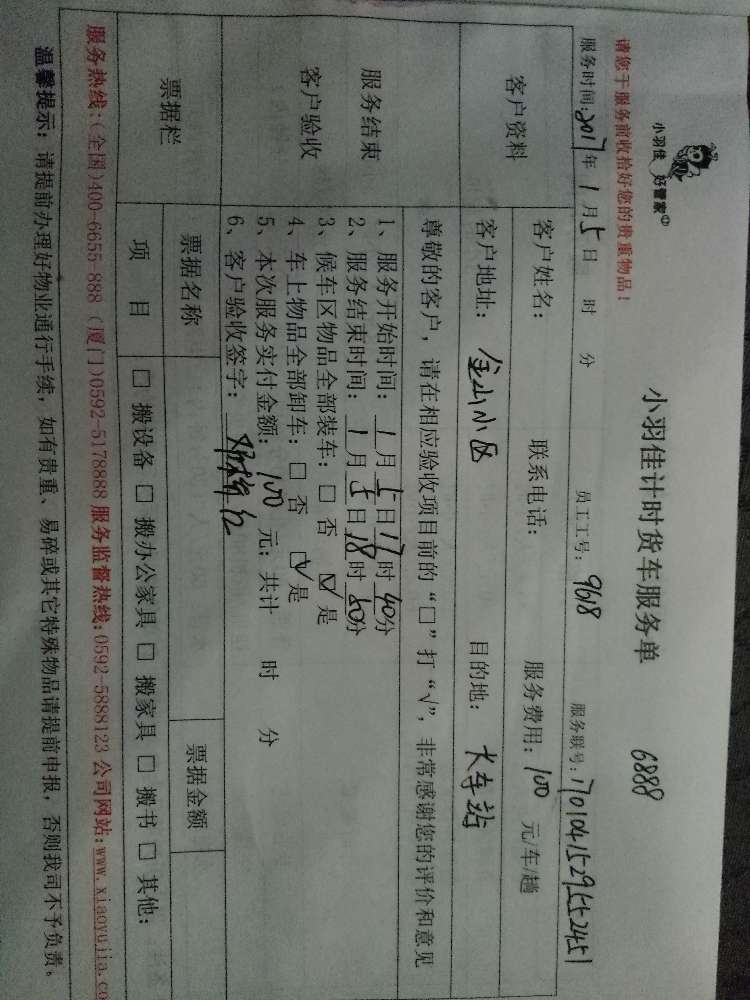 小羽佳 好管家
小羽佳计时货车服务单 6888
请您于服务前收拾好您的贵重物品！
服务时间:2017年1月5日 时 分 员工工号: 9618 服务联号:
客户资料
客户姓名: 联系电话: 服务费用: 100 元/车/趟
客户地址: 金山小区 目的地: 火车站
服务结束
客户验收
尊敬的客户，请在相应验收项目前的“□”打“√”，非常感谢您的评价和意见
1、服务开始时间: 1月5日17时40分
2、服务结束时间: 1月5日18时
3、候车区物品全部装车: □ 否 ☑ 是
4、车上物品全部卸车: □ 否 ☑ 是
5、本次服务实付金额: 100 元; 共计 时 分
6、客户验收签字:
票据栏
票据名称 票据金额
项 目 □ 搬设备 □ 搬办公家具 □ 搬家具 □ 搬书 □ 其他:
服务热线:(全国)400-6655-888 (厦门)0592-5178888 服务监督热线:0592-5888123 公司网站:www.xiaoyujia.co
温馨提示: 请提前办理好物业通行手续，如有贵重、易碎或其它特殊物品请提前申报，否则我司不予负责。